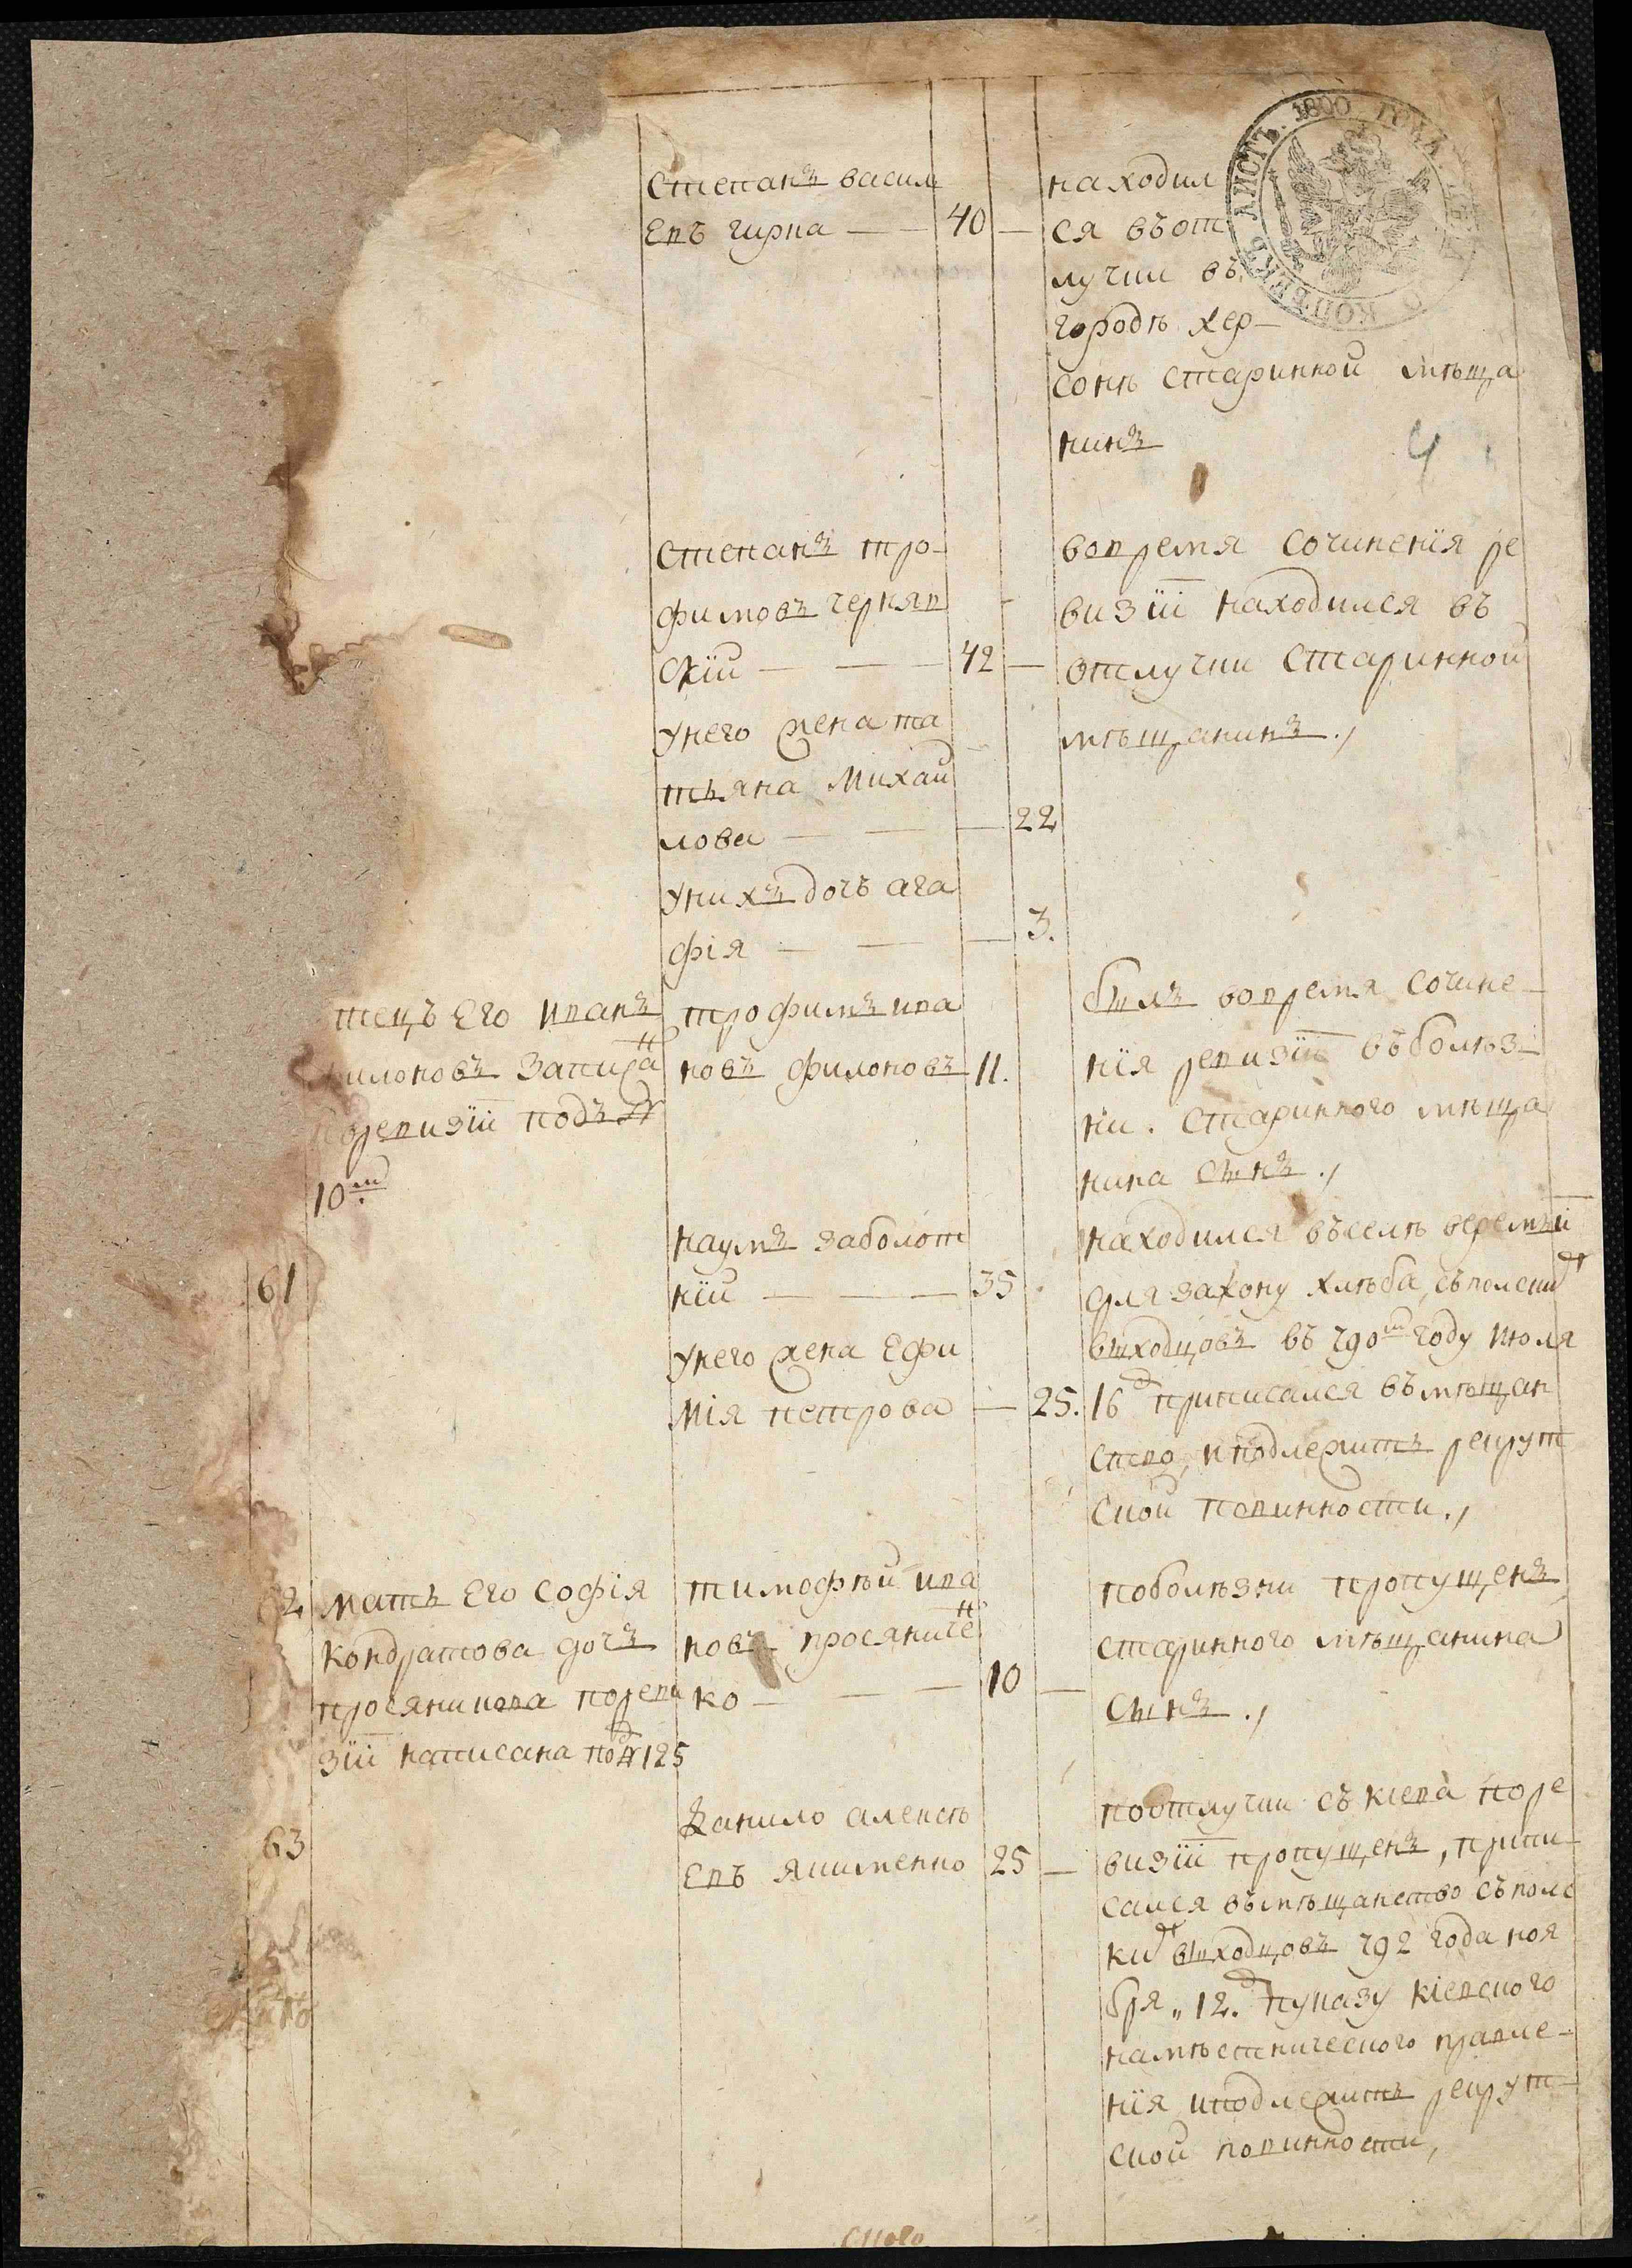 ЛИСТЪ. 1800. ГОДА.
КОПѢЕКЪ
Степанъ васил
евъ гирка — — 40 —
находил
ся въот
лучки въ
городѣ хер-
сонѣ старинной мѣща
нинъ
4
Степанъ тро-
фимовъ черняв
скïй — — — 42 —
унего жена та
тьяна михай
лова — — — 22
унихъ дочь ага
фiя — — — 3.
вовремя сочиненïя ре
визïи находился въ
отлучки старинной
мѣщанинъ.,
тецъ его иванъ
илоновъ записан
поревизïи подъ №
10м
трофимъ ива
новъ филоновъ 11.
былъ вовремя сочине-
нïя ревизïи въболѣз-
ни. старинного мѣща
нина сынъ.,
61
наумъ заболот
нïй — — — 35
унего жена ефи
мiя петрова — 25.
находился въселѣ веремъи
для закону хлѣба, съполски
выходцовъ въ 790м году июля
16 д приписался въмѣщан
ство, иподлежитъ рекрут
ской повинности.,
62
мать его софiя
кондратова дочь
просяникова переви
зïи написана под № 125
тимофѣй ива
новъ просяничен
ко — — — 10 —
поболѣзни пропущенъ
старинного мѣщанина
сынъ.,
63
Данило алексѣ
евъ якименко 25 —
поотлучки съ кiева поре
визïи пропущенъ, припи-
сался вѣмѣщанство съполс
ких выходцовъ 792 года ноя
бря „ 12. д пуказу кiевского
намѣстнического правле-
нïя иподлежитъ рекрут-
ской повинности,